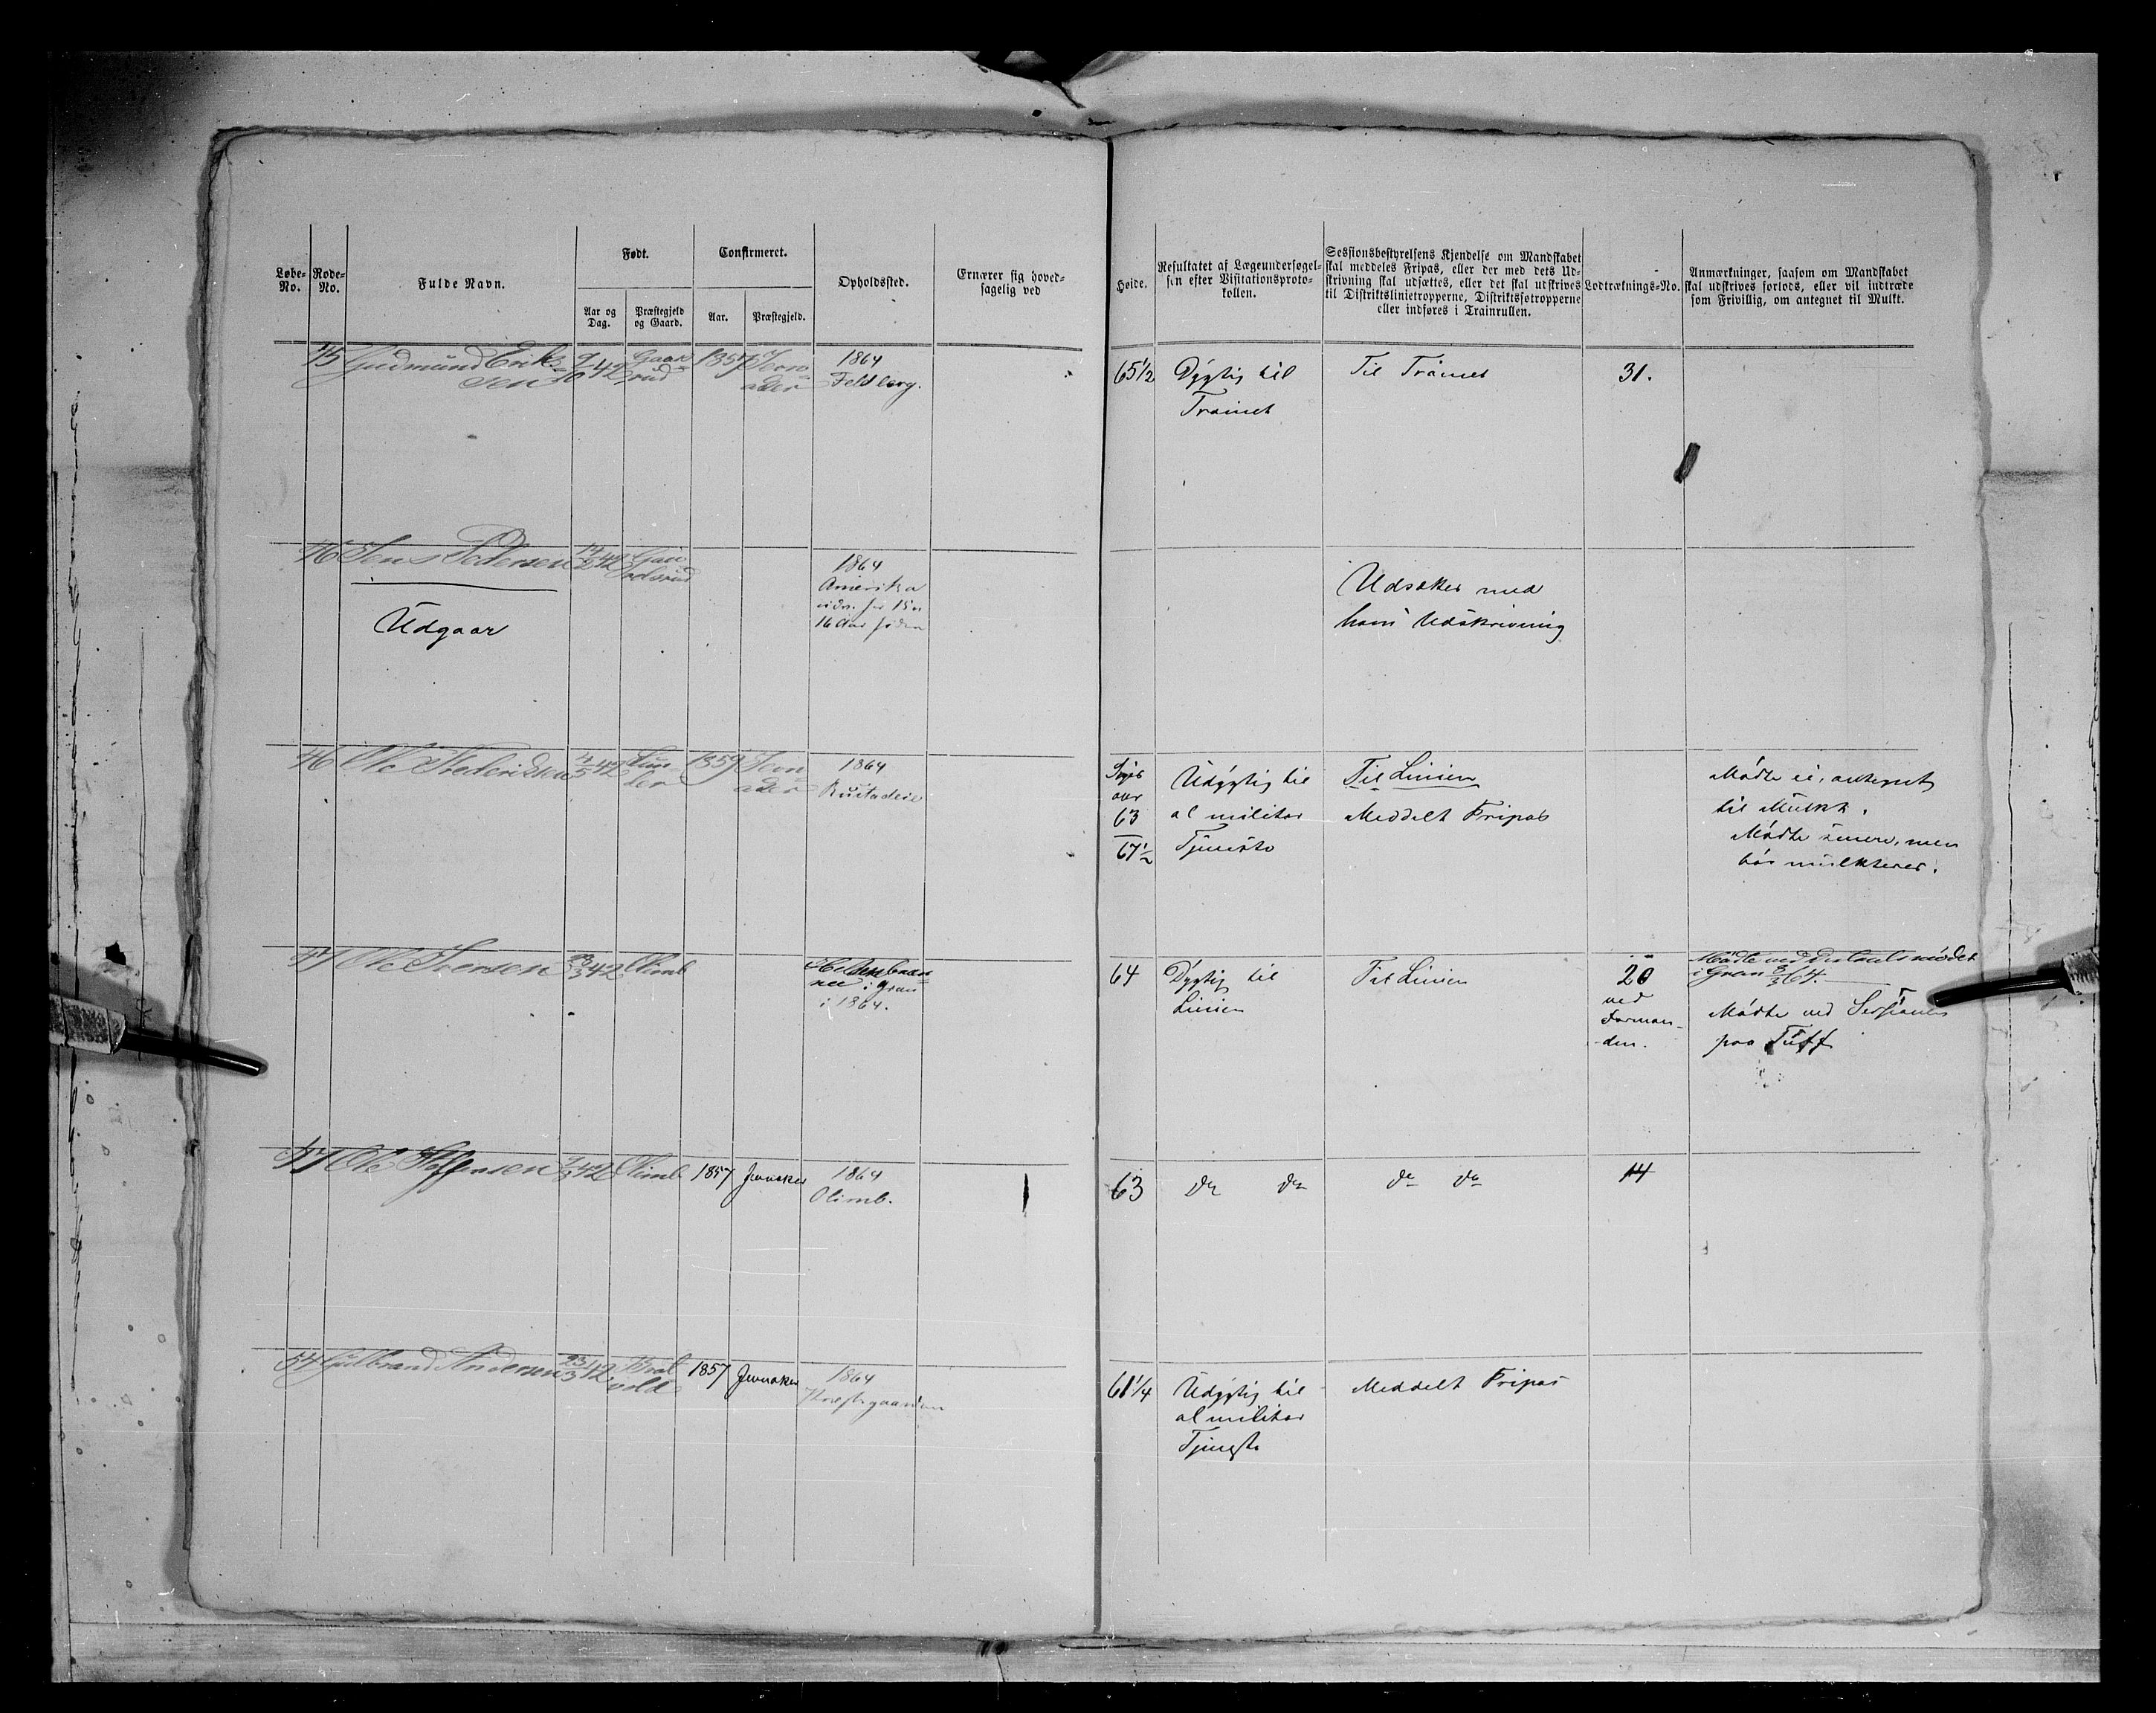 Løbe-No.
Rode-No.
Fulde Navn.
Født.
Aar og Dag.
Præstegjeld og Gaard.
Confirmeret.
Aar.
Præstegjeld.
Opholdssted.
Ernærer sig hoved-
sagelig ved
Høide.
Resultatet af Lægeundersøgel-
sen efter Visitationsproto-
kollen.
Sessionsbestyrelsens Kjendelse om Mandskabet
skal meddeles Fripas, eller der med dets Ud-
skrivning skal udsættes, eller det skal udskrives
til Distriktslinietropperne, Distriktsfotropperne
eller indføres i Trainrullen.
Lodtræknings-No.
Anmærkninger, saasom om Mandskabet
skal udskrives forlods, eller vil indtræde
som Frivillig, om antegnet til Mulkt.
45 Gudmund Erik-
sen 9/10 42 Gaar-
rud 1857 Jevn-
aker 1864
Feldberg.
65 1/2 Dygtig til
Trainet
Til Trainet
31.
46 Jens Pedersen 14/2 42
Udgaar
1864
Amerika
16 Aar siden
Udsættes med
hans Udskrivning
46 Ole Frederiksen 4/5 42 1859 Jevn-
aker 1864
over
63
67 1/2
Udygtig til
al militær
Tjeneste
Til Linien
Meddelt Fripas
Mødte ei, antegnet
til Mulkt.
Mødte senere, men
bør mulkteres.
47 Ole Iversen 23/3 42 Olimb
i Gran
i 1864.
64 Dygtig til
Linien
Til Linien
20
ved
Forman-
den.
Mødte ved
i Gran 3/3 64.
Mødte ved Sessionen
paa Tuff
47 Ole Steffensen 7/3 42 Olimb 1857 Jevnaker 1864
Olimb.
63 do do do do 14
54 Gulbrand Andersen 23/3 42 1857 Jevnaker 1864
Præstegaarden
61 1/4 Udygtig til
al militær
Tjeneste
Meddelt Fripas